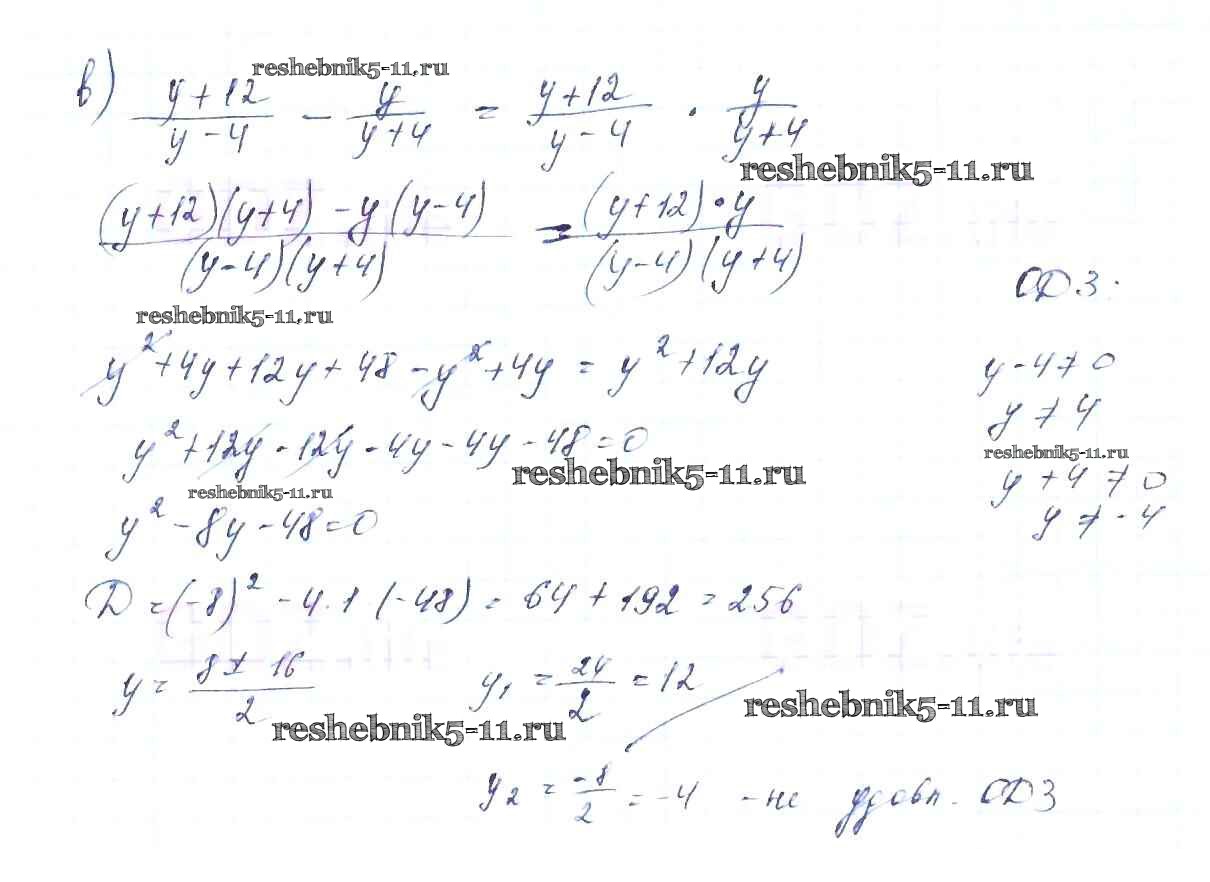 reshebnik5-11.ru
в) (y+12)/(y-4) - y/(y+4) = (y+12)/(y-4) · y/(y+4)
reshebnik5-11.ru
((y+12)(y+4) - y(y-4))/((y-4)(y+4)) = ((y+12)·y)/((y-4)(y+4))
ОДЗ:
reshebnik5-11.ru
y² + 4y + 12y + 48 - y² + 4y = y² + 12y
y - 4 ≠ 0
y ≠ 4
y² + 12y - 12y - 4y - 4y - 48 = 0
reshebnik5-11.ru
reshebnik5-11.ru
y + 4 ≠ 0
y ≠ -4
reshebnik5-11.ru
y² - 8y - 48 = 0
D = (-8)² - 4·1(-48) = 64 + 192 = 256
y = (8 ± 16)/2
y₁ = 24/2 = 12
reshebnik5-11.ru
reshebnik5-11.ru
y₂ = -8/2 = -4 - не удовл. ОДЗ